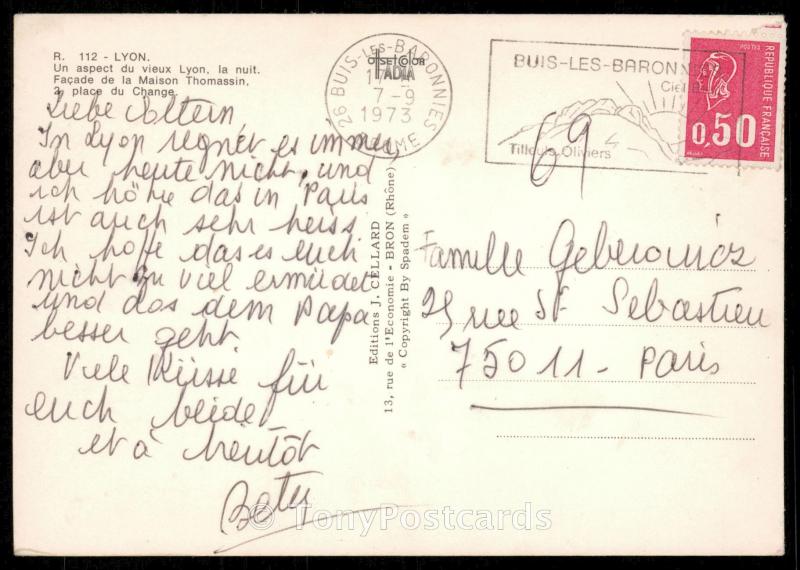 R. 112 - LYON.
Un aspect du vieux Lyon, la nuit.
Façade de la Maison Thomassin,
2, place du Change.
Liebe Eltern,
In Lyon regnet es immer,
aber heute nicht, und
ich höhre das in Paris
ist auch sehr heiss
Ich hoffe das es euch
nicht zu viel ermüdet
und das dem Papa
besser geht
Viele Küsse für
euch beide
et à bientôt
Editions J. CELLARD
13, rue de l'Economie - BRON (Rhône)
« Copyright By Spadem »
OFFSET COLOR
26 BUIS-LES-BARONNIES
7-9
1973
DROME
BUIS-LES-BARONNIES
Ciel
Tilleuls-Oliviers
69
POSTES
REPUBLIQUE FRANÇAISE
0,50
Famille Geberowicz
25 rue St Sebastien
75011 - Paris
© TonyPostcards